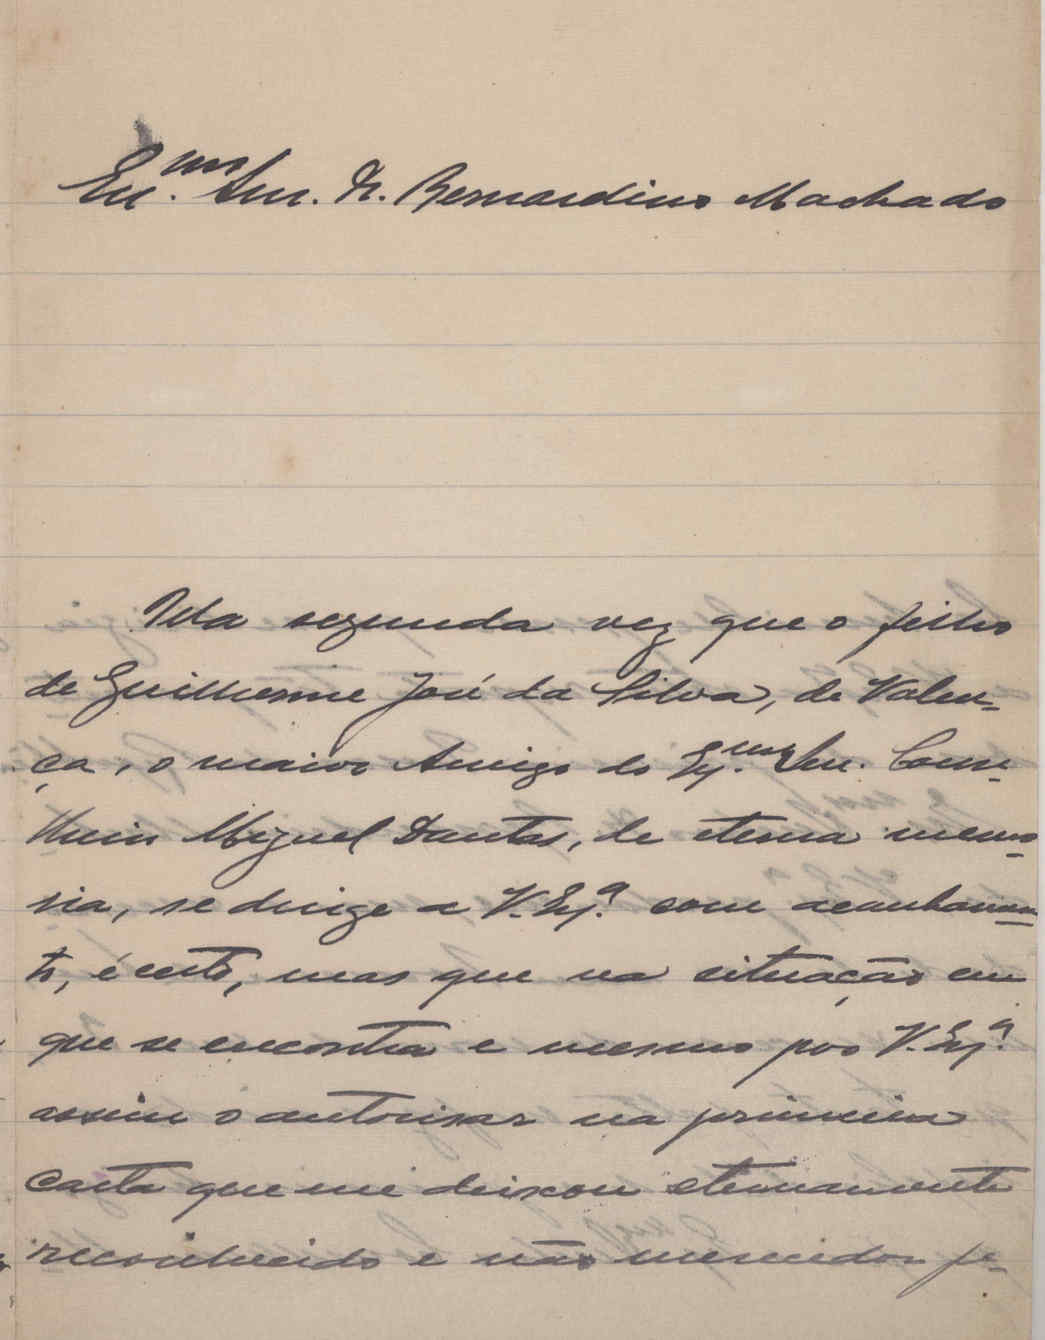 Ex.mo Snr. Dr. Bernardino Machado
Pela segunda vez que o filho
de Guilherme José da Silva, de Valen-
ça, o maior Amigo do Ex.mo Snr. Conse-
lheiro Miguel Dantas, de eterna memo-
ria, se dirige a V. Ex.ª com acanhamen-
to, é certo, mas que na situação em
que se encontra e mesmo por V. Ex.ª
assim o autorisar na primeira
carta que me deixou eternamente
reconhecido e não merecedor